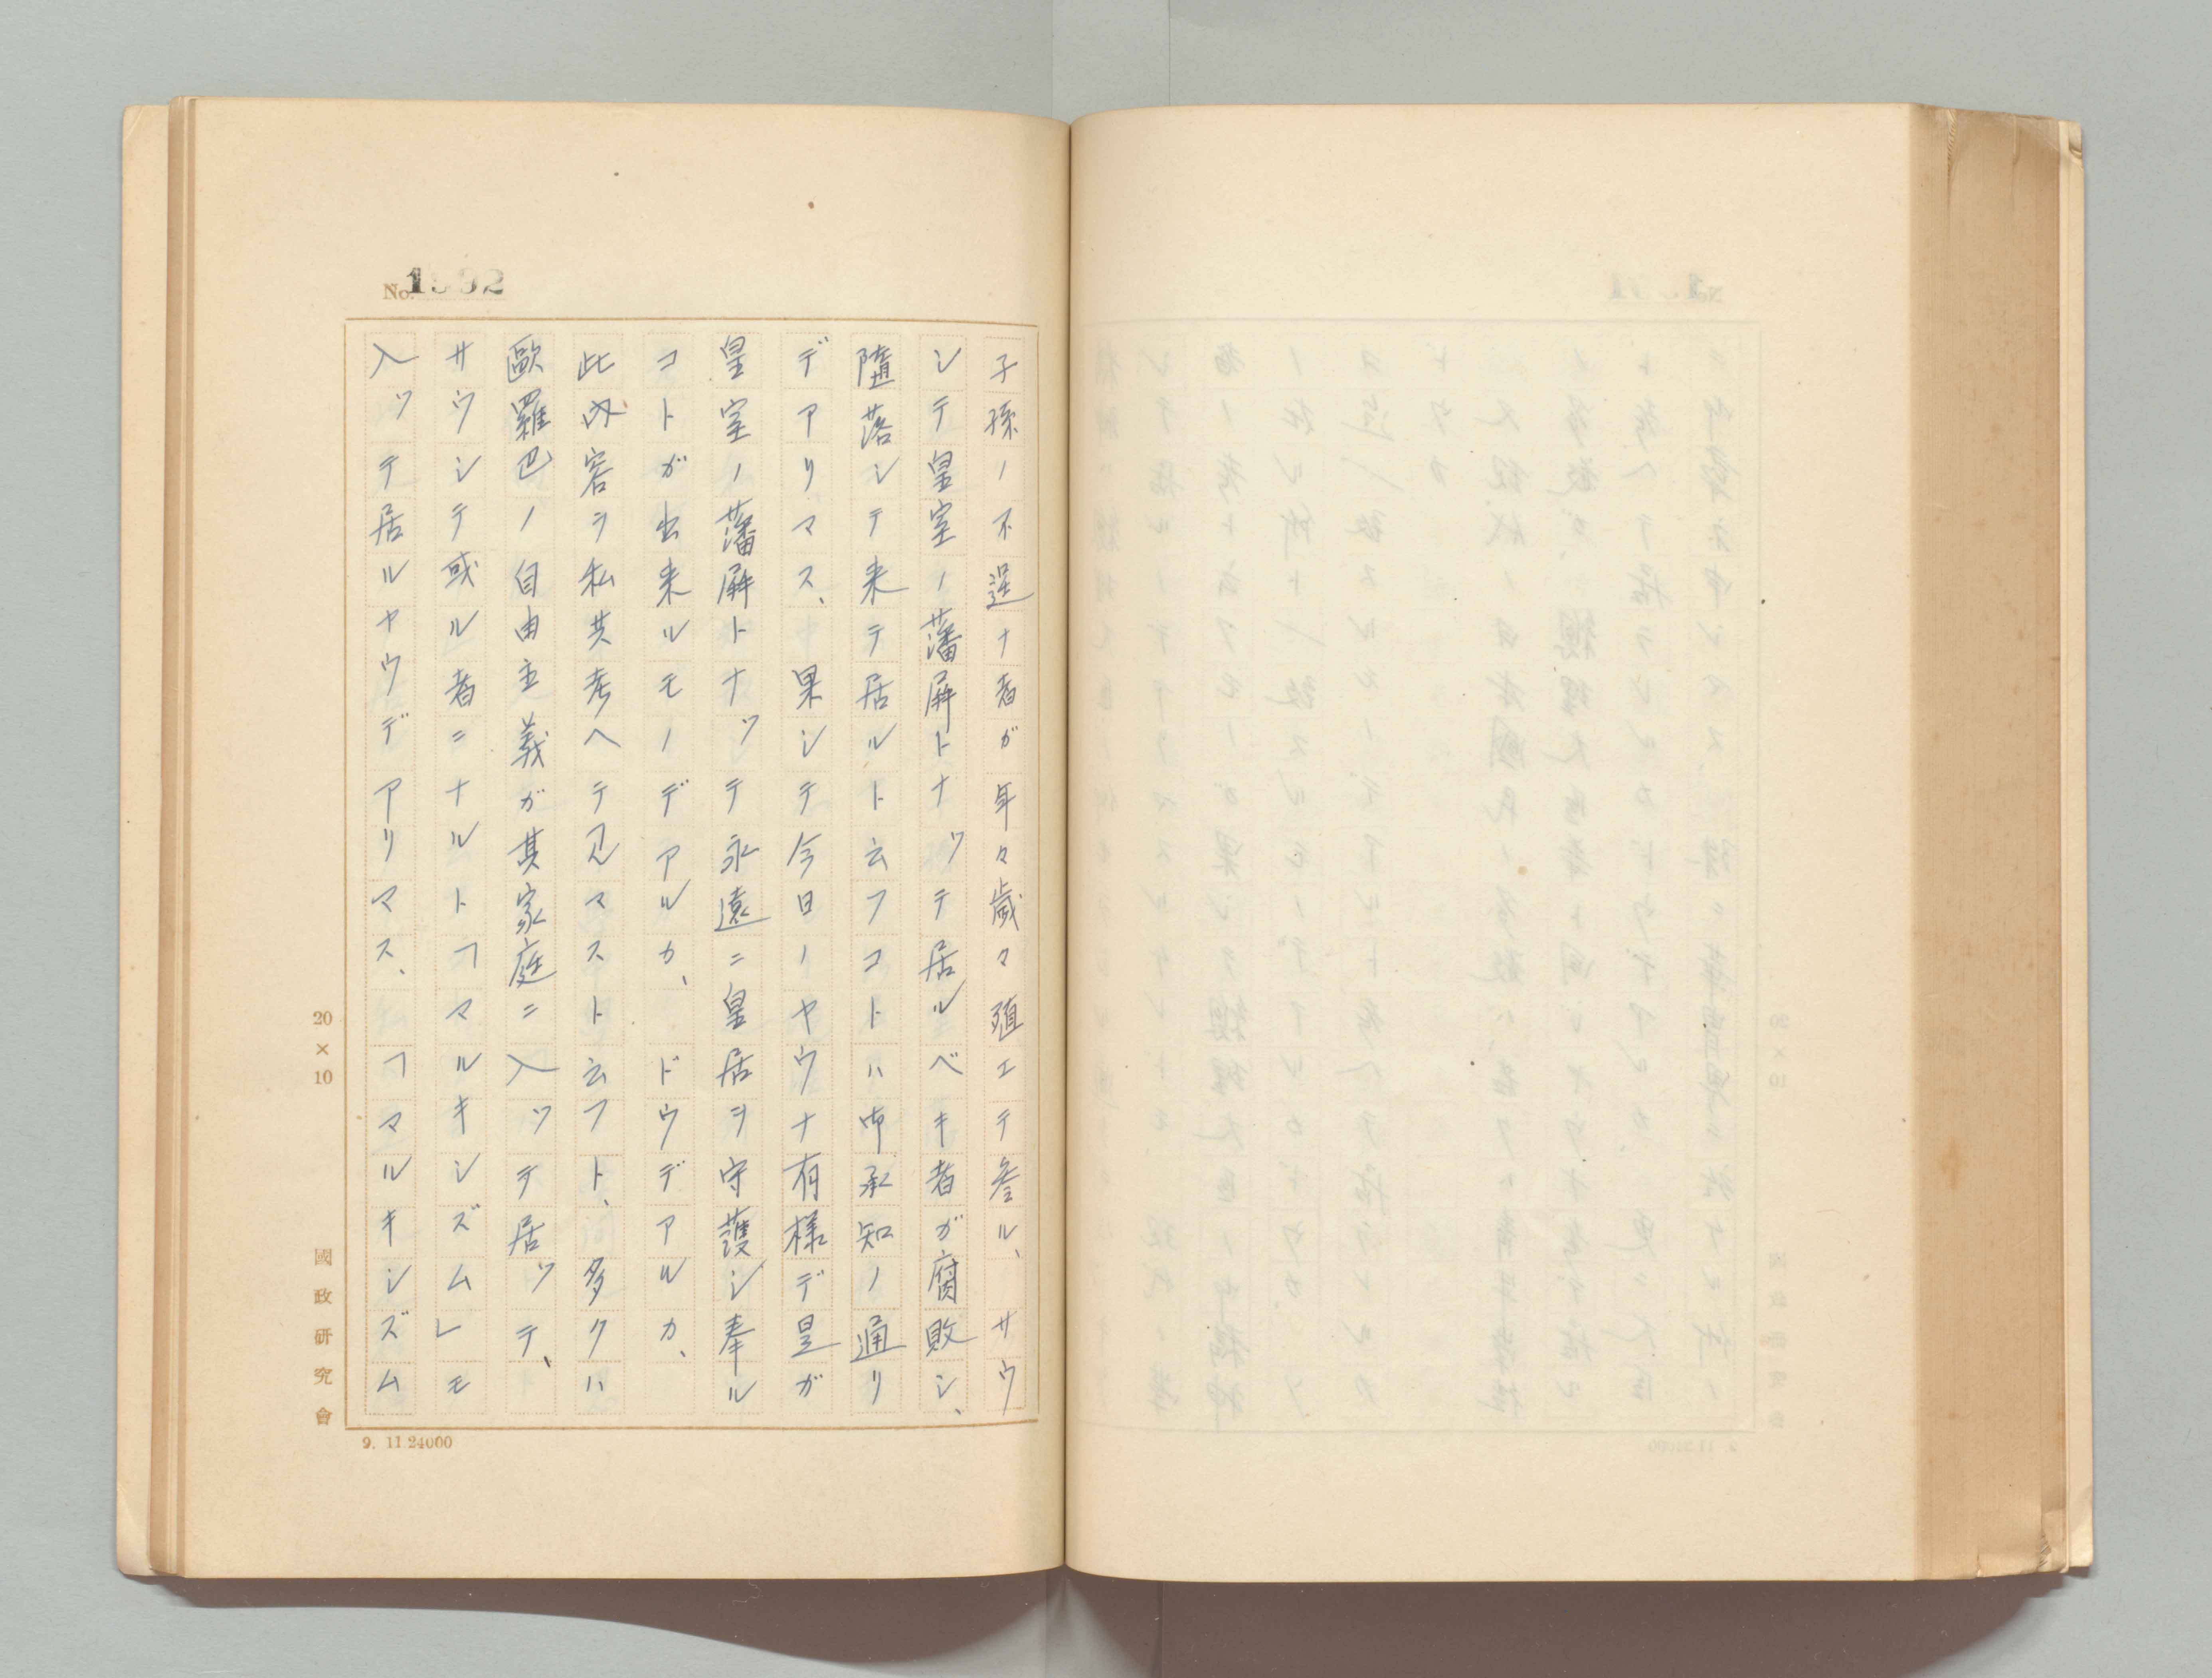 No. 1992
子孫ノ不逞ナ者ガ年々歳々殖エテ參ル、サウ
シテ皇室ノ藩屏トナッテ居ルベキ者ガ腐敗シ、
隨落シテ来テ居ルト云フコトハ御承知ノ通リ
デアリマス、果シテ今日ノヤウナ有様デ是ガ
皇室ノ藩屏トナッテ永遠ニ皇居ヲ守護シ奉ル
コトガ出来ルモノデアルカ、ドウデアルカ、
此内容ヲ私共考ヘテ見マスト云フト、多クハ
歐羅巴ノ自由主義ガ其家庭ニ入ッテ居ッテ、
サウシテ或ル者ニナルト「マルキシズム」モ
入ッテ居ルヤウデアリマス、「マルキシズム
20×10
國政研究會
9. 11.24000